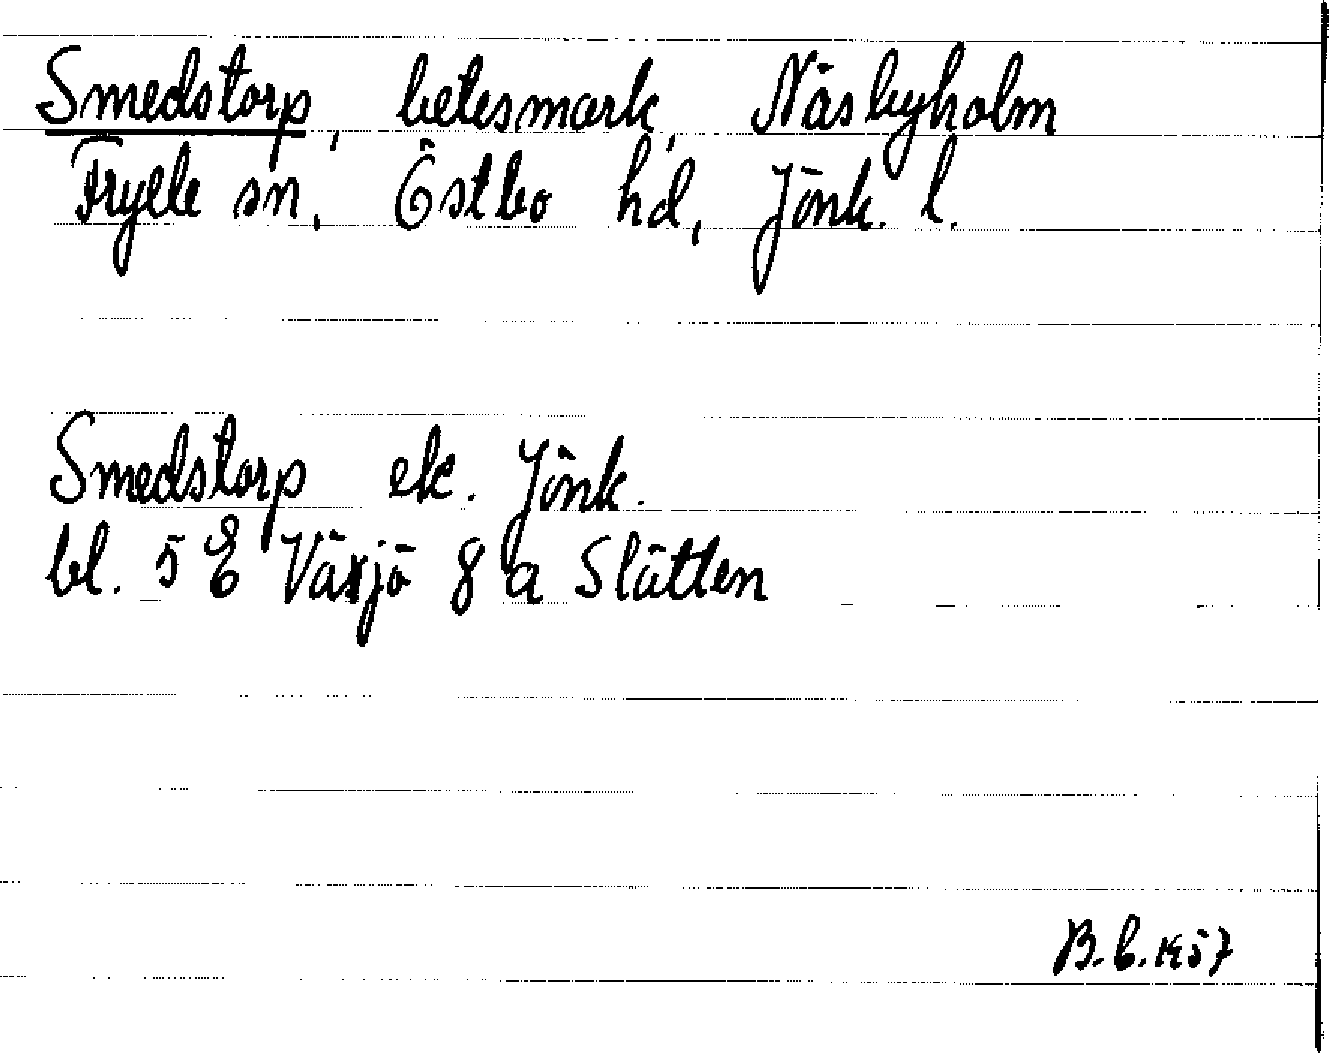 Smedstorp, betesmark, Näsbyholm
Fryele sn, Östbo hd, Jönk. l.
Smedstorp ek. Jönk.
bl. 5 E Växjö 8 a Slätten
B.b. 1957